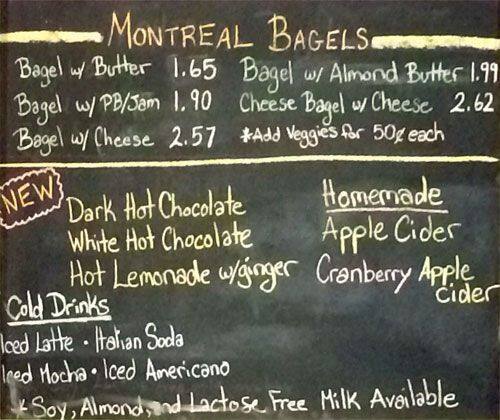 MONTREAL BAGELS
Bagel w/ Butter 1.65
Bagel w/ PB/Jam 1.90
Bagel w/ Cheese 2.57
Bagel w/ Almond Butter 1.99
Cheese Bagel w/ Cheese 2.62
*Add Veggies for 50¢ each
NEW
Dark Hot Chocolate
White Hot Chocolate
Hot Lemonade w/ginger
Homemade
Apple Cider
Cranberry Apple
cider
Cold Drinks
Iced Latte • Italian Soda
Iced Mocha • Iced Americano
* Soy, Almond, and Lactose Free Milk Available